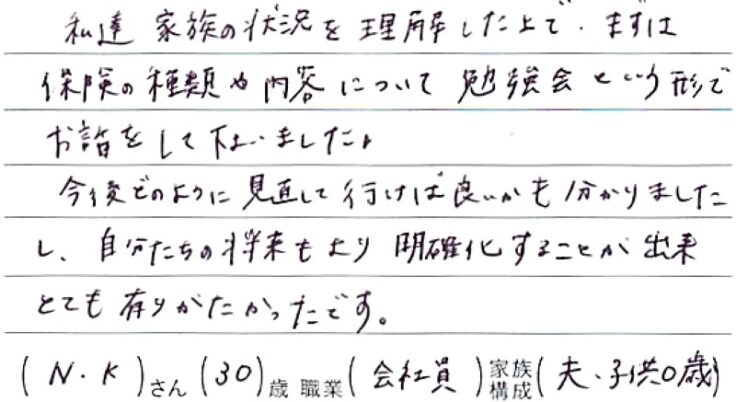 私達 家族の状況を理解した上で、まずは
保険の種類や内容について勉強会という形で
お話をして下さいました。
今後どのように見直して行けば良いかも分かりました
し、自分たちの将来もより明確化することが出来
とても有りがたかったです。
(N・K)さん(30)歳 職業(会社員)家族構成(夫・子供0歳)